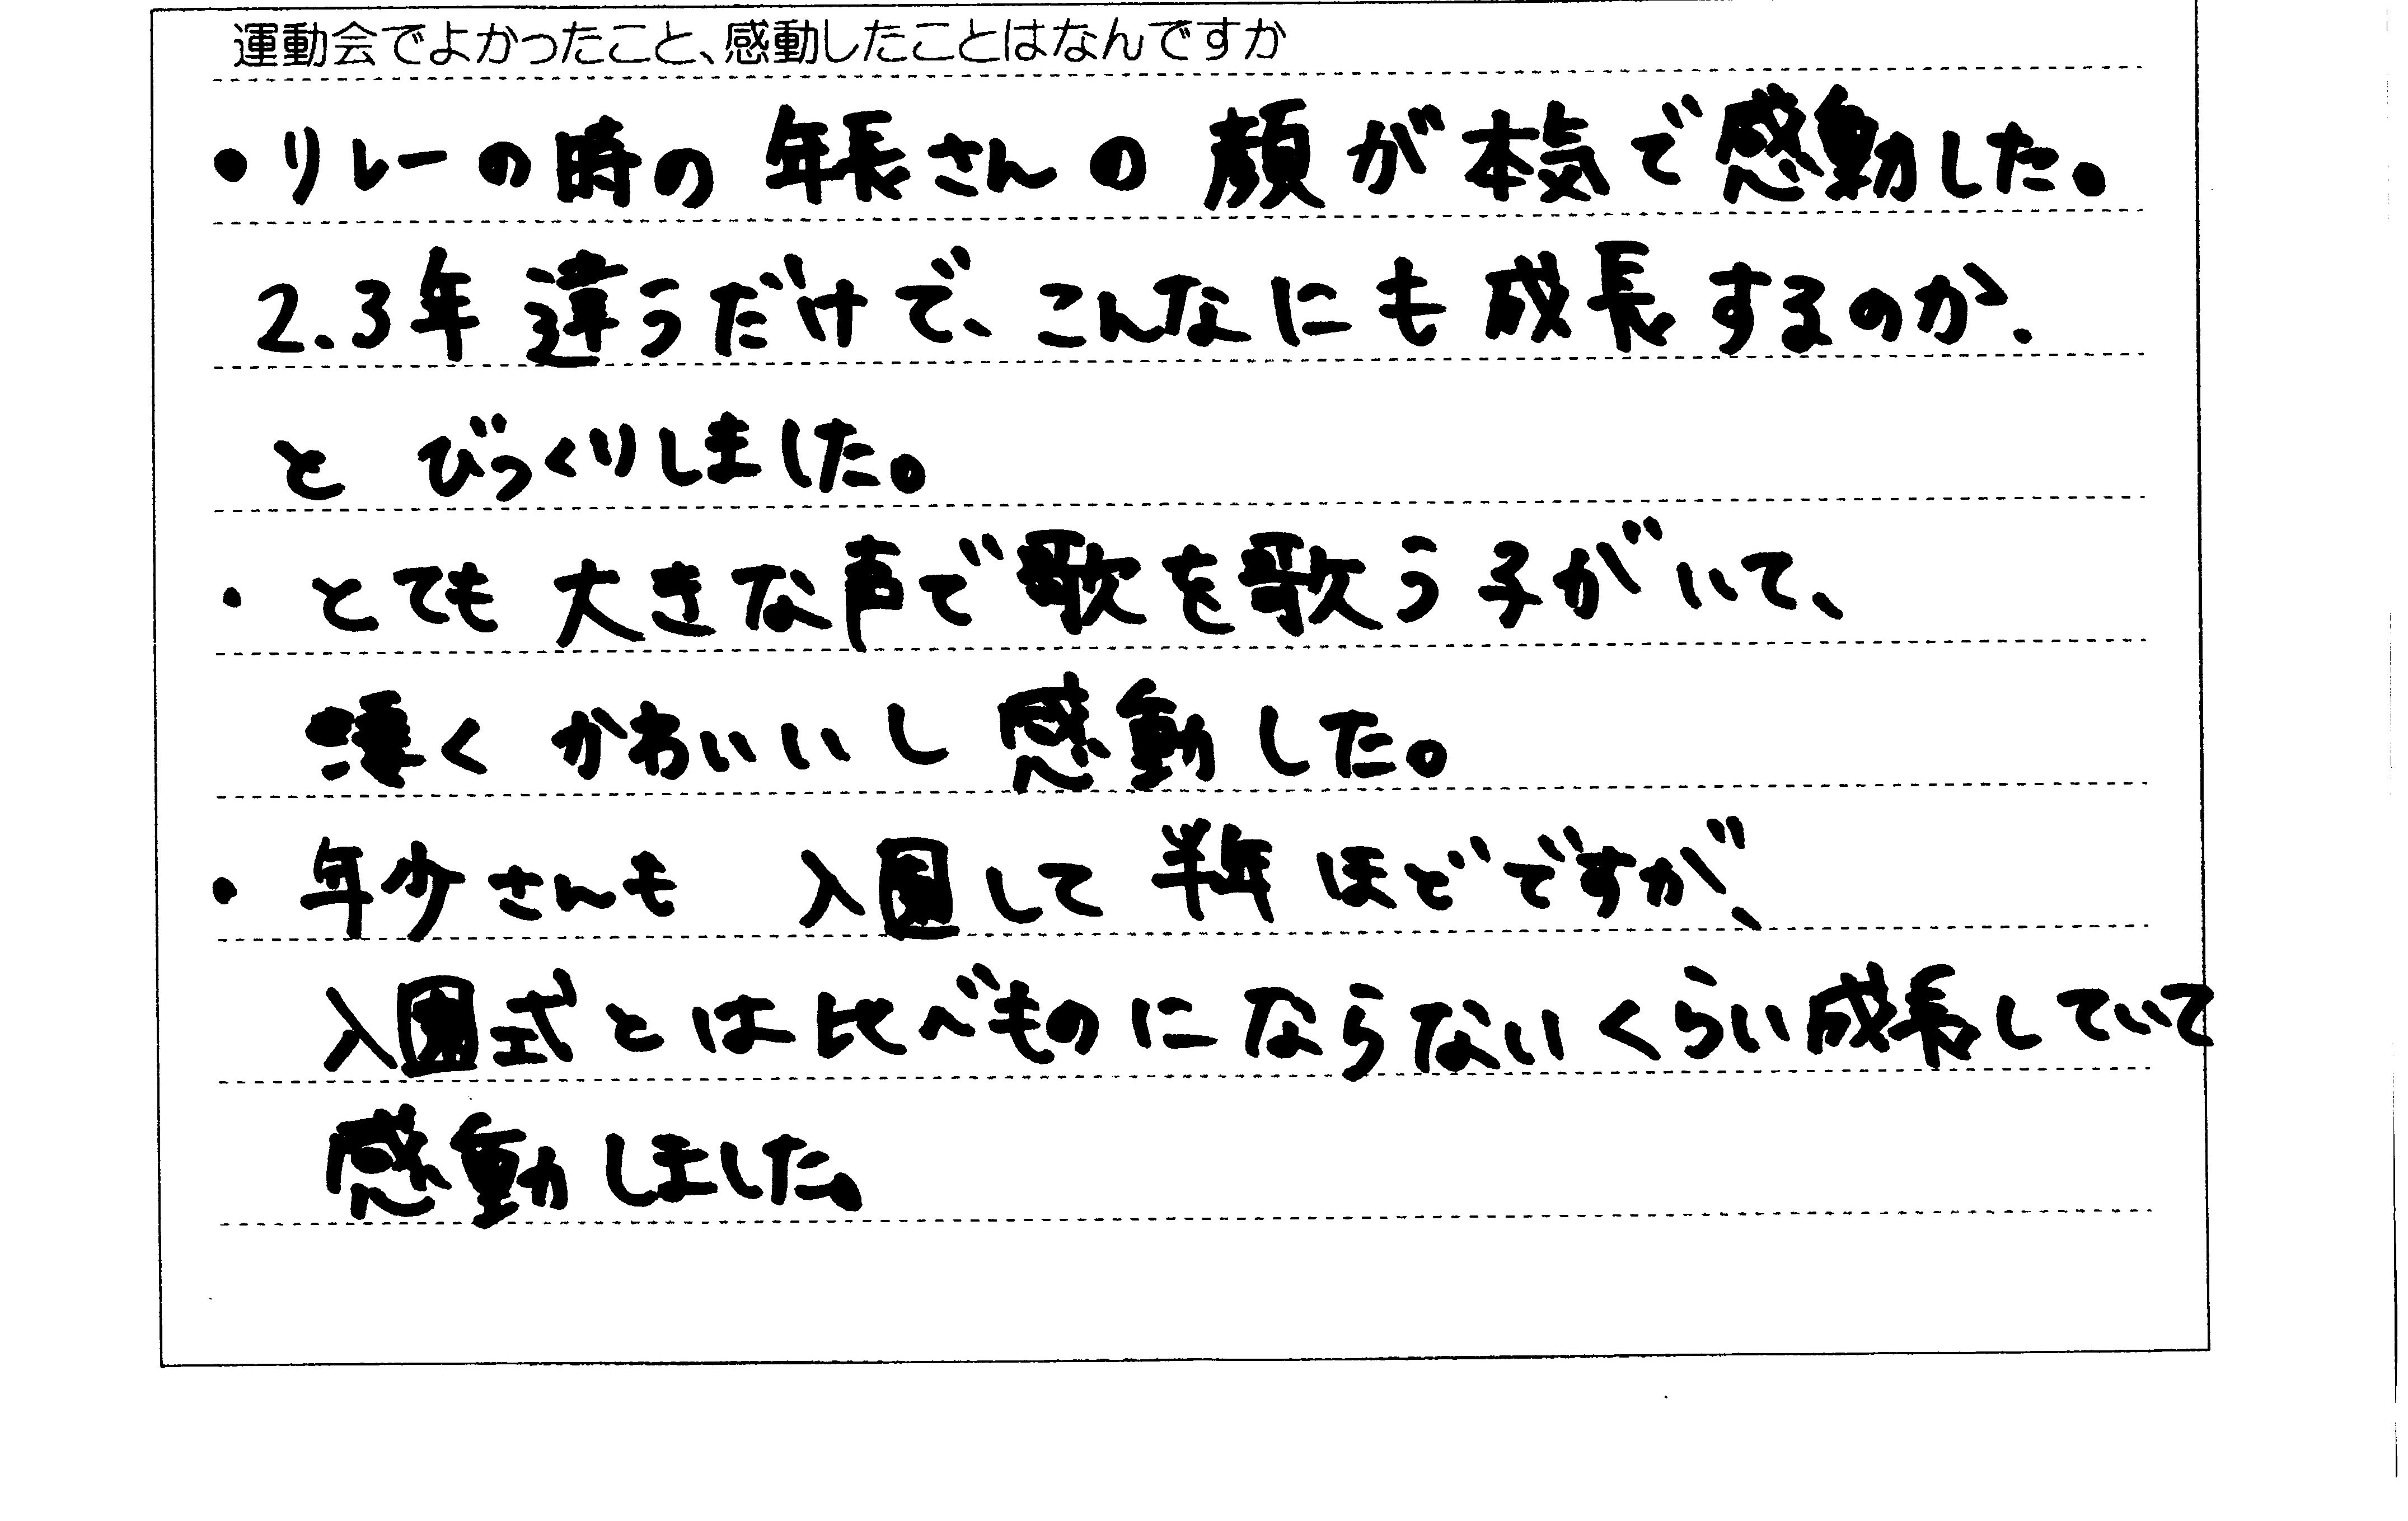 運動会でよかったこと、感動したことはなんですか
・リレーの時の 年長さんの 顔が本気で感動した。
2.3年 違うだけで、こんなにも 成長するのか.
と びっくりしました。
・とても 大きな声で歌を歌う子がいて、
凄く かわいいし 感動した。
・年少さんも 入園して 半年ほどですが、
入園式とは比べものにならないくらい成長していて
感動しました。